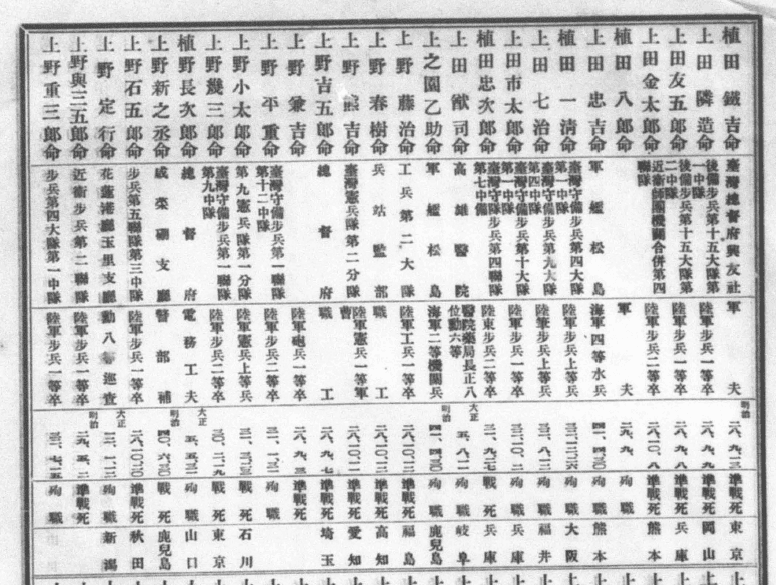 植田鐵吉命 臺灣總督府興友社 軍夫 明治 二八、九、一三 準戰死 東京
上田隣造命 後備步兵第十五大隊第一中隊 陸軍步兵一等卒 二八、九、九 準戰死 岡山
上田友五郎命 後備步兵第十五大隊第二中隊 陸軍步兵一等卒 二八、九、八 準戰死 兵庫
上田金太郎命 近衞師團機關合併第四聯隊 陸軍步兵二等卒 二八、一〇、八 準戰死 熊本
植田八郎命 軍夫 殉職
上田忠吉命 軍艦松島 海軍四等水兵 四一、四、三〇 殉職 熊本
植田一淸命 臺灣守備步兵第四大隊第一中隊 陸軍步兵上等兵 殉職 大阪
上田七治命 臺灣守備步兵第九大隊第四中隊 陸軍步兵上等兵 殉職 福井
上田市太郎命 臺灣守備隊步兵第十大隊第一中隊 陸軍步兵一等卒 殉職 兵庫
植田忠次郎命 臺灣守備隊步兵第四聯隊第七中隊 陸軍步兵二等卒 三一、九、二七 戰死 兵庫
上田猷司命 高雄醫院 醫院藥局長正八位勳六等 大正 五、八、二一 殉職 岐阜
上之園乙助命 軍艦松島 海軍二等機關兵 明治 四一、四、三〇 殉職 鹿兒島
上野藤治命 工兵第二大隊 陸軍工兵一等卒 準戰死 福島
上野春樹命 兵站監部 職工 準戰死 高知
上野熊吉命 臺灣憲兵隊第二分隊 陸軍憲兵一等軍曹 準戰死 愛知
上野吉五郎命 總督府 職工 二八、九、七 準戰死 埼玉
上野兼吉命 陸軍砲兵一等卒 準戰死
上野平重命 臺灣守備步兵第一聯隊第十二中隊 陸軍步兵二等卒 殉職
上野小太郎命 第九憲兵隊第一分隊 陸軍憲兵上等兵 戰死 石川
上野幾三郎命 臺灣守備步兵第一聯隊第九中隊 陸軍步兵二等卒 戰死 東京
植野長次郎命 總督府 電務工夫 大正 殉職 山口
上野新之丞命 咸菜硼支廳 警部補 明治 四〇、六、三〇 戰死 鹿兒島
上野石五郎命 步兵第五聯隊第三中隊 陸軍步兵一等卒 二八、一〇、二〇 準戰死 秋田
上野定行命 花蓮港廳玉里支廳 勳八等巡査 大正 殉職 新潟
上野與三五郎命 近衞步兵第二聯隊 陸軍步兵一等卒 明治 準戰死
上野重三郎命 步兵第四大隊第一中隊 陸軍步兵一等卒 三一、七、二五 殉職